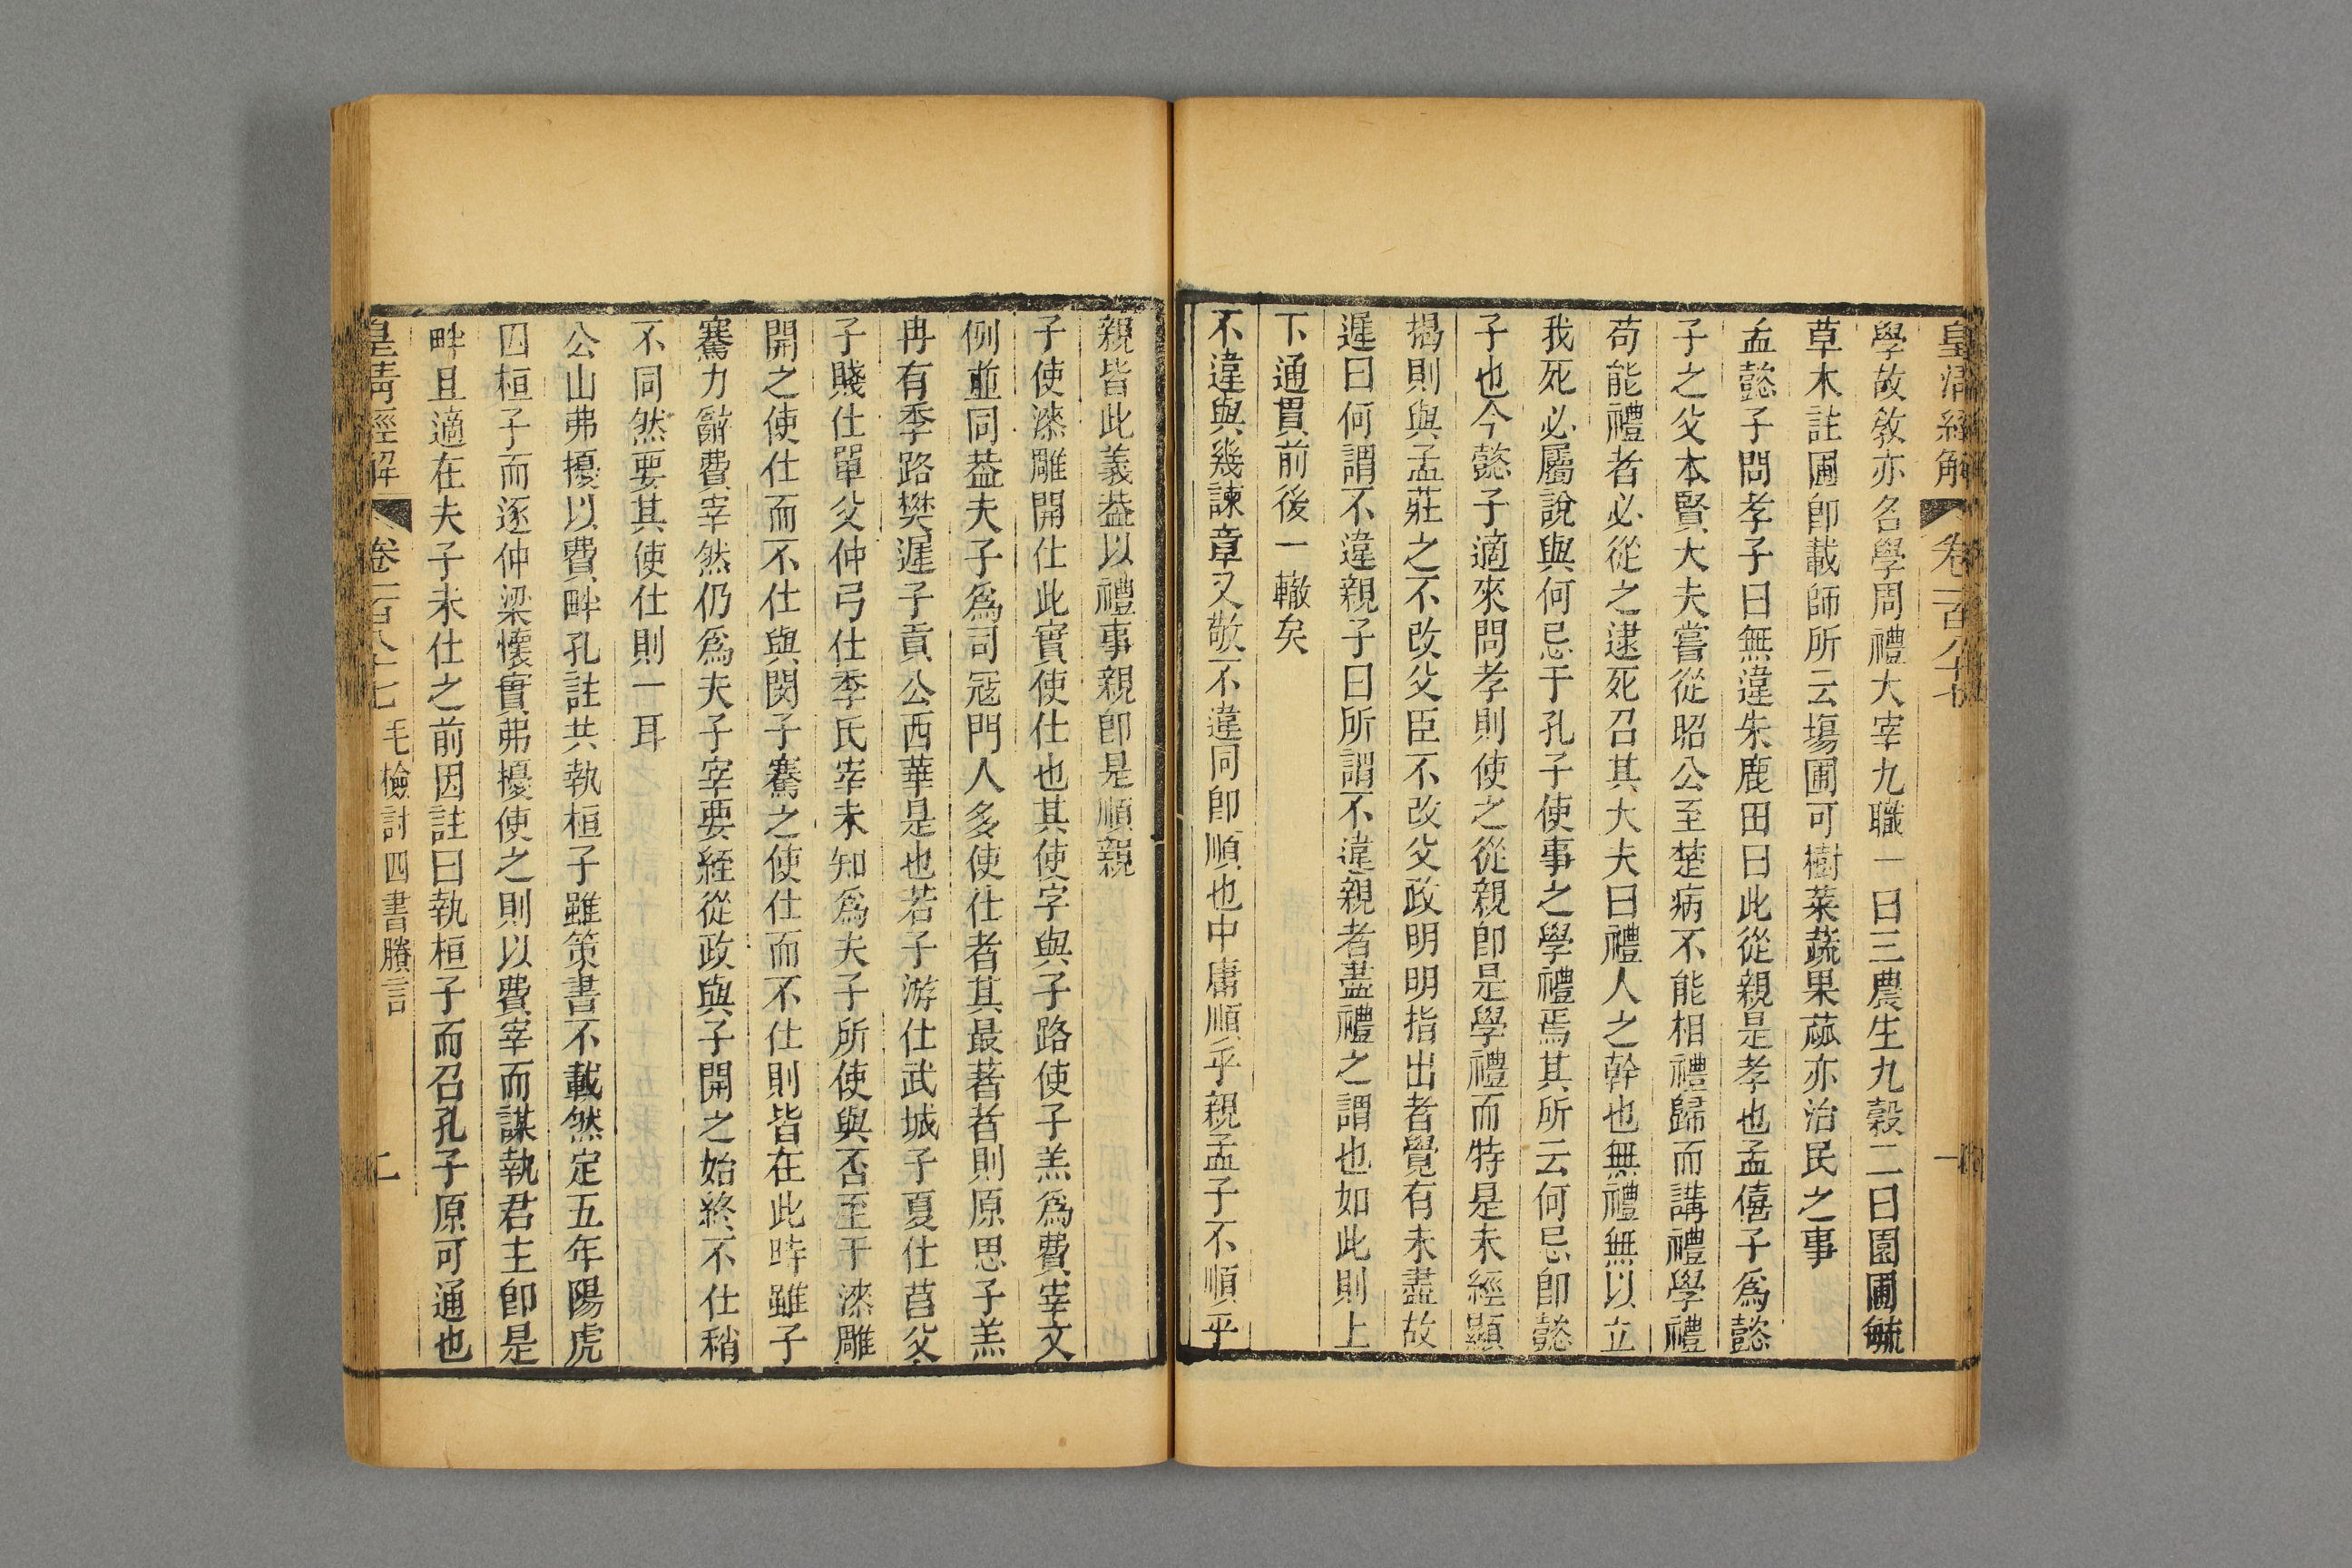 皇清經解
卷一百八十七
一
學故敎亦名學周禮大宰九職一曰三農生九穀二曰園圃毓
草木註圃卽載師所云塲圃可樹菜蔬果蓏亦治民之事
孟懿子問孝子曰無違朱鹿田曰此從親是孝也孟僖子爲懿
子之父本賢大夫嘗從昭公至楚病不能相禮歸而講禮學禮
苟能禮者必從之逮死召其大夫曰禮人之幹也無禮無以立
我死必屬說與何忌于孔子使事之學禮焉其所云何忌卽懿
子也今懿子適來問孝則使之從親卽是學禮而特是未經顯
揭則與孟莊之不改父臣不改父政明明指出者覺有未盡故
遲曰何謂不違親子曰所謂不違親者盡禮之謂也如此則上
下通貫前後一轍矣
不違與幾諫章又敬不違同卽順也中庸順乎親孟子不順乎
親皆此義葢以禮事親卽是順親
子使漆雕開仕此實使仕也其使字與子路使子羔爲費宰文
例並同葢夫子爲司冦門人多使仕者其最著者則原思子羔
冉有季路樊遲子貢公西華是也若子游仕武城子夏仕莒父
子賤仕單父仲弓仕季氏宰未知爲夫子所使與否至于漆雕
開之使仕而不仕與閔子騫之使仕而不仕則皆在此時雖子
騫力辭費宰然仍爲夫子宰要絰從政與子開之始終不仕稍
不同然要其使仕則一耳
公山弗擾以費畔孔註共執桓子雖策書不載然定五年陽虎
囚桓子而逐仲梁懷實弗擾使之則以費宰而謀執君主卽是
畔且適在夫子未仕之前因註曰執桓子而召孔子原可通也
皇淸經解
卷一百八十七
毛檢討四書賸言
二